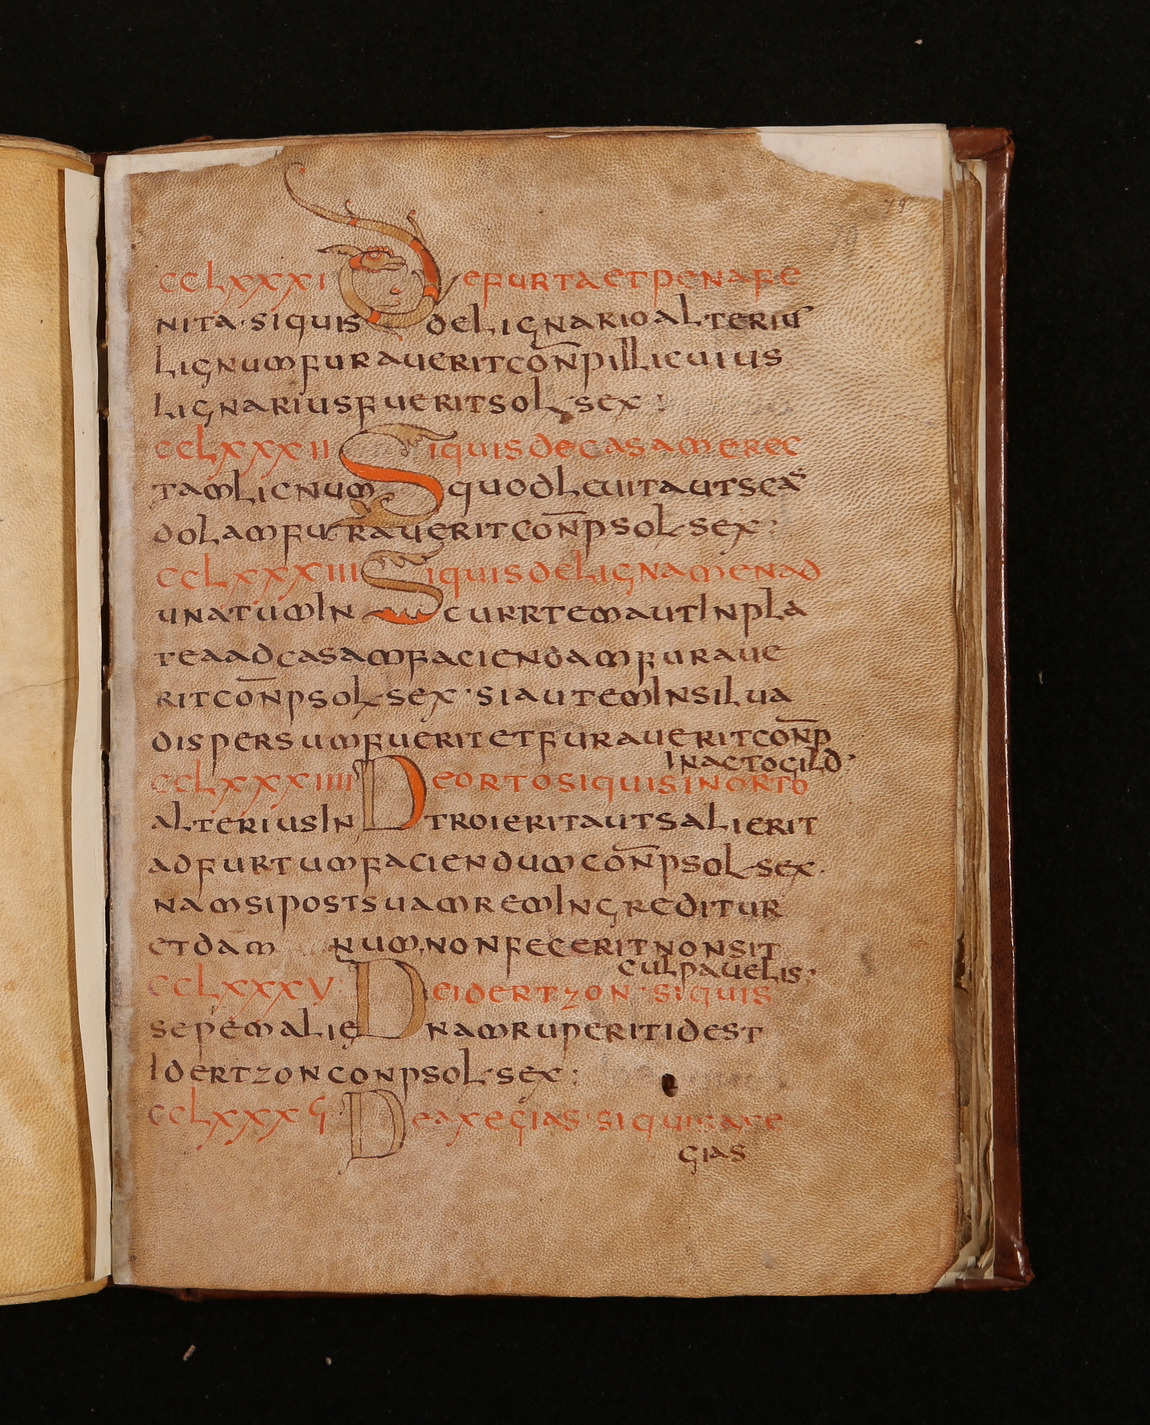 CCLXXXI DE FURTA ET PENA FE
NITA · SI QUIS DE LIGNARIO ALTERIUS
LIGNUM FURAVERIT CON̄P ILLI CUIUS
LIGNARIUS FUERIT SOL SEX :
CCLXXXII SI QUIS DE CASAM EREC
TAM LIGNUM QUODLEUIT AUT SCAN
DOLAM FURAUERIT CON̄P SOL SEX :
CCLXXXIII SI QUIS DE LIGNAMEN AD
UNATUM IN CURRTEM AUT IN PLA
TEA AD CASAM FACIENDAM FURAUE
RIT CON̄P SOL SEX · SI AUTEM IN SILUA
DISPERSUM FUERIT ET FURAUERIT CON̄P
IN ACTOGILD ·
CCLXXXIIII DE ORTO SI QUIS IN ORTO
ALTERIUS INTROIERIT AUT SALIERIT
AD FURTUM FACIENDUM CON̄P SOL SEX ·
NAM SI POST SUAM REM INGREDITUR
ET DAMNUM NON FECERIT NON SIT
CULPAUELIS ;
CCLXXXV DE IDERTZON · SI QUIS
SEPEM ALIENAM RUPERIT ID EST
IDERTZON CONP SOL SEX :
CCLXXXϚ DE AXEGIAS · SI QUIS AXE
GIAS